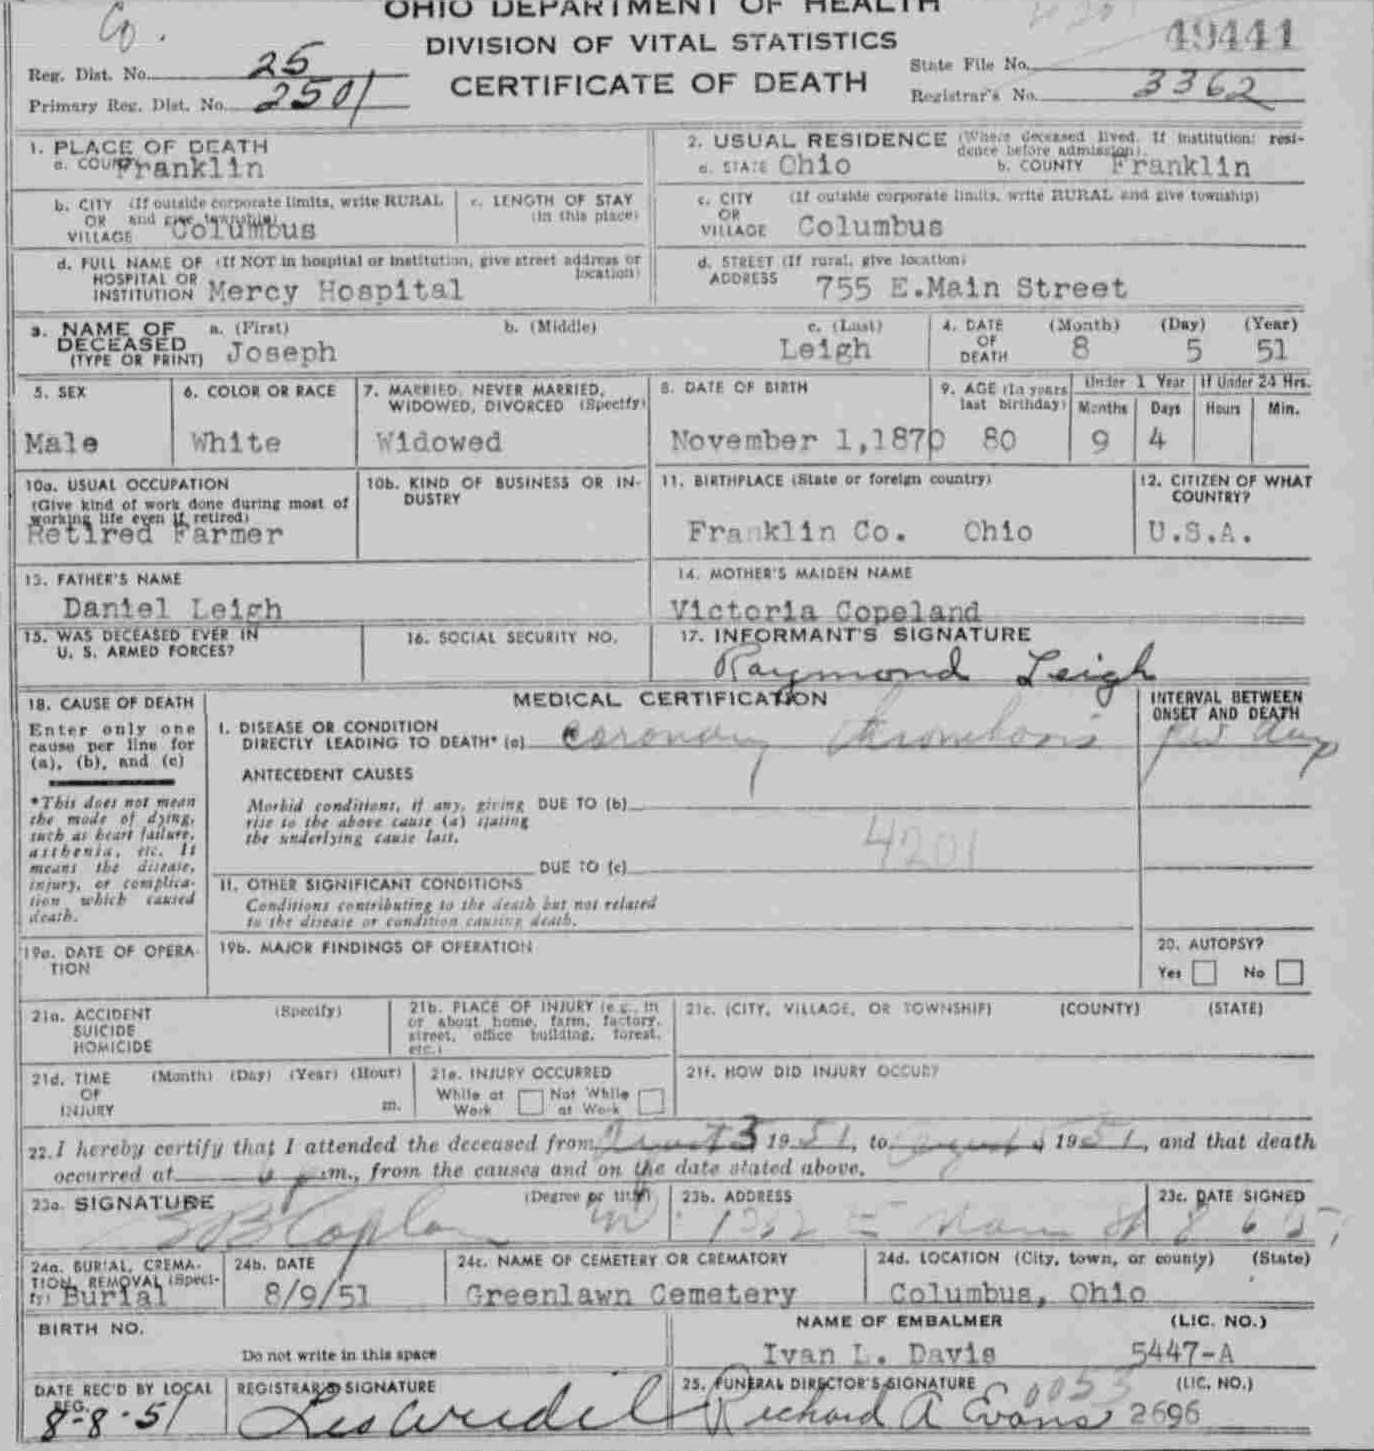 Co.
OHIO DEPARTMENT OF HEALTH
DIVISION OF VITAL STATISTICS
CERTIFICATE OF DEATH
Reg. Dist. No. 25
Primary Reg. Dist. No. 2501
49441
State File No.
Registrar's No. 3362
1. PLACE OF DEATH
a. COUNTY Franklin
b. CITY (If outside corporate limits, write RURAL
OR and give township)
VILLAGE Columbus
c. LENGTH OF STAY
(in this place)
d. FULL NAME OF (If NOT in hospital or institution, give street address or
HOSPITAL OR location)
INSTITUTION Mercy Hospital
2. USUAL RESIDENCE (Where deceased lived. If institution: resi-
dence before admission).
a. STATE Ohio b. COUNTY Franklin
c. CITY (If outside corporate limits, write RURAL and give township)
OR
VILLAGE Columbus
d. STREET (If rural, give location)
ADDRESS 755 E.Main Street
3. NAME OF a. (First) b. (Middle) c. (Last)
DECEASED
(TYPE OR PRINT) Joseph Leigh
4. DATE (Month) (Day) (Year)
OF
DEATH 8 5 51
5. SEX
Male
6. COLOR OR RACE
White
7. MARRIED, NEVER MARRIED,
WIDOWED, DIVORCED (Specify)
Widowed
8. DATE OF BIRTH
November 1,1870
9. AGE (In years
last birthday)
80
Under 1 Year
Months Days
9 4
If Under 24 Hrs.
Hours Min.
10a. USUAL OCCUPATION
(Give kind of work done during most of
working life even if retired)
Retired Farmer
10b. KIND OF BUSINESS OR IN-
DUSTRY
11. BIRTHPLACE (State or foreign country)
Franklin Co. Ohio
12. CITIZEN OF WHAT
COUNTRY?
U.S.A.
13. FATHER'S NAME
Daniel Leigh
14. MOTHER'S MAIDEN NAME
Victoria Copeland
15. WAS DECEASED EVER IN
U. S. ARMED FORCES?
16. SOCIAL SECURITY NO.
17. INFORMANT'S SIGNATURE
Raymond Leigh
18. CAUSE OF DEATH
Enter only one
cause per line for
(a), (b), and (c)
*This does not mean
the mode of dying,
such as heart failure,
asthenia, etc. It
means the disease,
injury, or complica-
tion which caused
death.
MEDICAL CERTIFICATION
I. DISEASE OR CONDITION
DIRECTLY LEADING TO DEATH* (a) Coronary thrombosis
ANTECEDENT CAUSES
Morbid conditions, if any, giving DUE TO (b)
rise to the above cause (a) stating
the underlying cause last.
4201
DUE TO (c)
II. OTHER SIGNIFICANT CONDITIONS
Conditions contributing to the death but not related
to the disease or condition causing death.
INTERVAL BETWEEN
ONSET AND DEATH
few days
19a. DATE OF OPERA-
TION
19b. MAJOR FINDINGS OF OPERATION
20. AUTOPSY?
Yes No
21a. ACCIDENT (Specify)
SUICIDE
HOMICIDE
21b. PLACE OF INJURY (e.g., in
or about home, farm, factory,
street, office building, forest,
etc.)
21c. (CITY, VILLAGE, OR TOWNSHIP) (COUNTY) (STATE)
21d. TIME (Month) (Day) (Year) (Hour)
OF
INJURY m.
21e. INJURY OCCURRED
While at Not While
Work at Work
21f. HOW DID INJURY OCCUR?
22. I hereby certify that I attended the deceased from 3, 1951, to August, 1951, and that death
occurred at m., from the causes and on the date stated above.
23a. SIGNATURE (Degree or title)
S B Caplan
23b. ADDRESS
E Main St
23c. DATE SIGNED
8 6 51
24a. BURIAL, CREMA-
TION, REMOVAL (Speci-
fy) Burial
24b. DATE
8/9/51
24c. NAME OF CEMETERY OR CREMATORY
Greenlawn Cemetery
24d. LOCATION (City, town, or county) (State)
Columbus, Ohio
BIRTH NO.
Do not write in this space
NAME OF EMBALMER (LIC. NO.)
Ivan L. Davis 5447-A
DATE REC'D BY LOCAL
REG.
8-8-51
REGISTRAR'S SIGNATURE
25. FUNERAL DIRECTOR'S SIGNATURE (LIC. NO.)
0053
Richard A Evans 2696